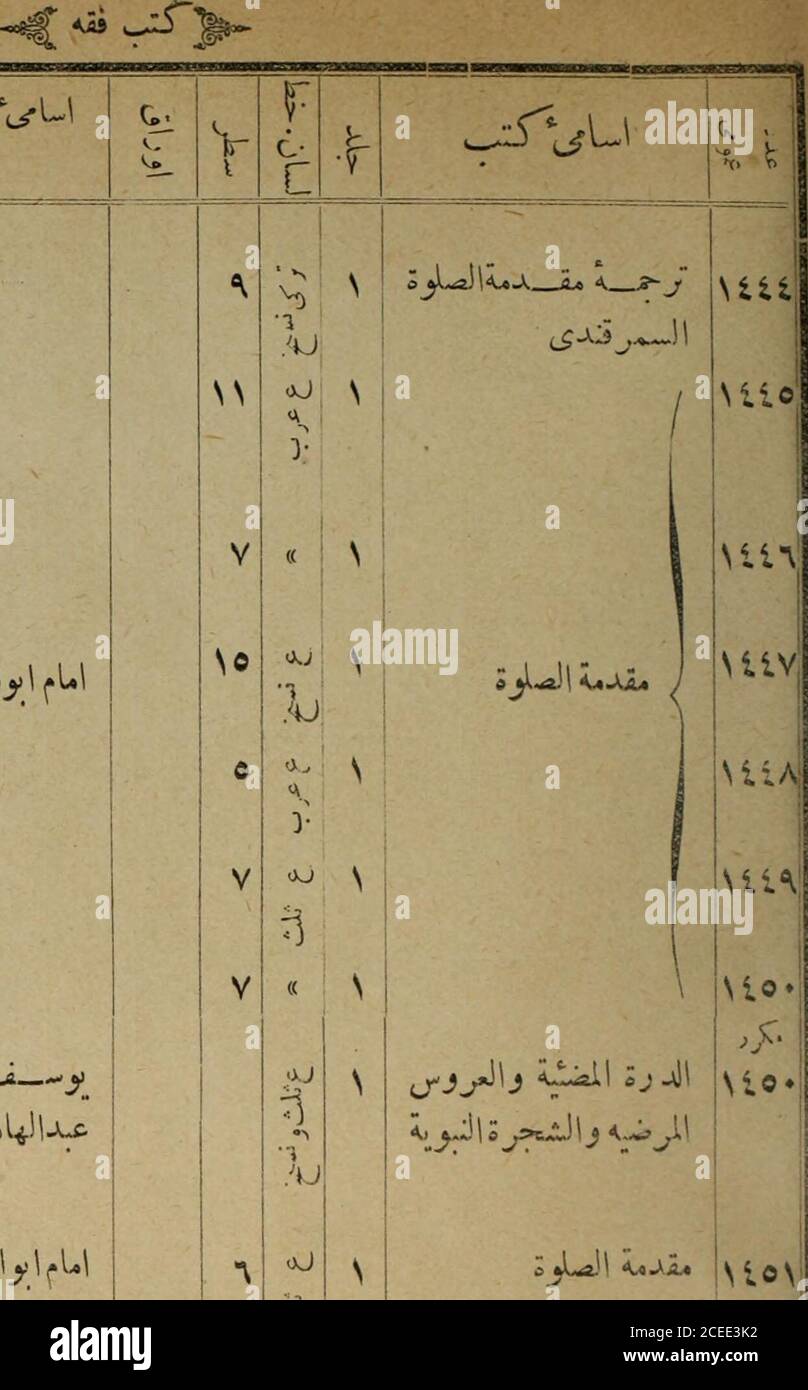 كتب فقه
عدد عمومى | اسامئ كتب | جلد | لسان. خط | سطر | اوراق | اسامئ
١٤٤٤ | ترجمۀ مقدمةالصلوة | ١ | تركى نسخ | ٩
السمرقندى
١٤٤٥ | ١ | ع عرب | ١١
١٤٤٦ | ١ | » | ٧
١٤٤٧ | مقدمة الصلوة | ١ | ع نسخ | ١٥ | امام ابو
١٤٤٨ | ١ | ع عرب | ٥
١٤٤٩ | ١ | ع ثلث | ٧
١٤٥٠ | ١ | » | ٧
مكرر
١٤٥٠ | الدرة المضئية والعروس | ١ | ع ثلث و نسخ | يوسف
المرضيه والشجرة النبوية | عبدالهاد
١٤٥١ | مقدمة الصلوة | ١ | ع | ٦ | امام ابوا
alamy
alamy
alamy
alamy
Image ID: 2CEE3K2
www.alamy.com